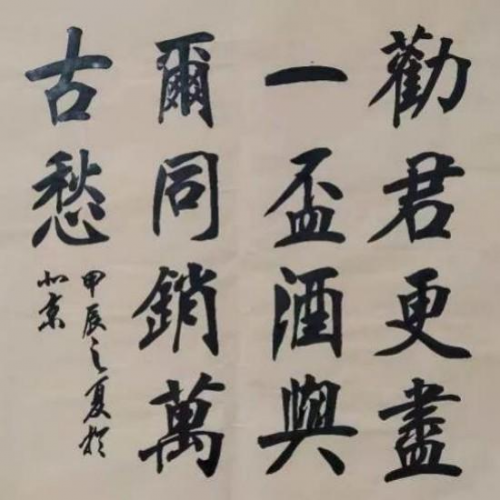 勸君更盡
一盃酒與
爾同銷萬
古愁
甲辰之夏於
北京